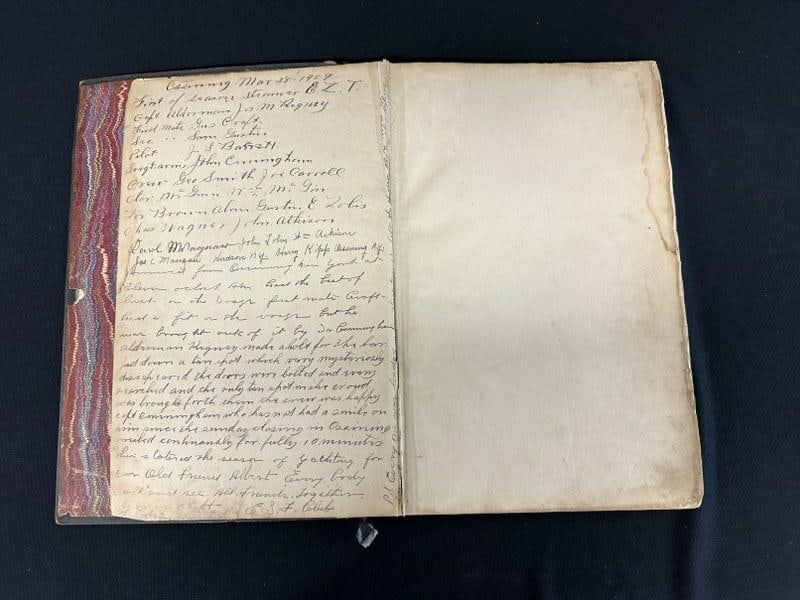 Ossining Mar 28-1909
First of season steamer E. Z. T.
Capt Alderman Jos M Rigney
First mate Gus Craft.
Sec " Sam Gustin
Pilot J S Barrett
Sergt arms John Cuningham
Crew Geo Smith Joe Carroll
Wm
Brown Alvin Gustin E Lobis
Chas Wagner John Atkison
John Lobis
Joe C Mangan Hudson Ny. Harry Kipp Ossining Ny.
from Ossining York at
Eleven oclock had the best of
luck on the voage first mate Craft
had a fit on the voage but he
was brought out of it by Cunningham
Alderman Rigney made a bolt for the bar
put down a ten spot which very mysteriously
dissapeared the doors were bolted and every
searched and the only ten spot in the crowd
was brought forth then the crew was happy
capt Cunningham who has not had a smile on
him since the sunday closing in Ossining
smiled continuously for fully 10 minutes
this started the season of Yachting for
our Old Friend Albert Every body
and see. Old Friends, Together
Club